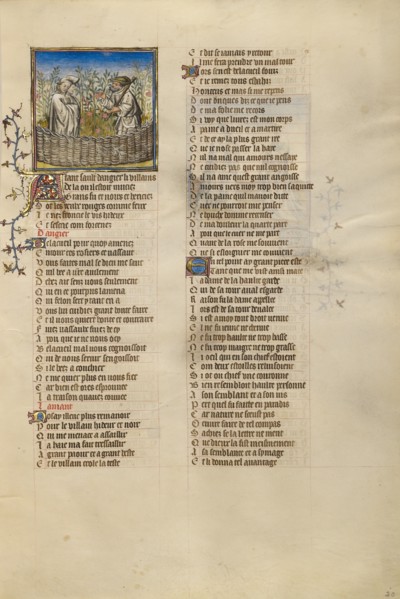 Atant sault dangier li villains
De la ou il estoit muciez
Grans fu et noirs et hericiez
Sot les yeulx rouges comme feux
Le nez froncie le vis hideux
Et sescrie com forcenez
Dangier
Belacueil pour quoy amenez
Entour ces rosiers ce vassault
Vous faites mal se dieu me sault
Quil bee a vostre avilement
Dehez ait sans vous seulement
Qui en ce pourpris lamena
Qui felon sert itant en a
Vous lui cuidiez grant bonte faire
Et il vous quiert honte et contraire
Fuiez vassaulx fuiez de cy
A pou que je ne vous ocy
Belacueil mal vous congnoissoit
Qui de vous servir sengoissoit
Si le bez a conchier
Ne me quier plus en vous fier
Car bien est ores esprouvee
La traison quavez couvee
Lamant
Nosay illec plus remanoir
Pour le villain hideux et noir
Qui me menace a assaillir
La haie ma fait tressaillir
A grant paour et a grant heste
Et le villain crole la teste
Et dit se jamais y retour
Il me fera prendre un mal tour
Lors sen est belacueil fouiz
Et je remez tous esbahiz
Honteux et mas si me repens
Dont onques dis ce que je pens
De ma folie me recors
Si voy que livrez est mon corps
A paine a dueil et a martire
Et de ce ay la plus grant ire
Que je nosay passer la haie
Nul na mal qui amours nessaie
Ne cuidiez pas que nul congnoisse
Sil na ame quest grant angoisse
Amours vers moy trop bien saquitte
De la paine quil mavoit ditte
Cuer ne pourroit mie penser
Ne bouche domme recenser
De ma douleur la quarte part
A pou que le cuer ne me part
Quant de la rose me souvient
Que si eslongnier me couvient
En ce point ay grant piece este
Tant que me vist ainsi mate
La dame de la haulte garde
Qui de sa tour aval esgarde
Raison fu la dame appellee
Lors est de sa tour devalee
Si est a moy tout droit venue
Elle ne fu vieille ne chenue
Ne fu trop haulte ne trop basse
Ne fu trop maigre ne trop grasse
Li oeil qui en son chief estoient
Com deux estoilles reluisoient
Si ot ou chief une couronne
Bien resembloit haulte personne
A son semblant et a son vis
Pert quel fu faitte en paradis
Car nature ne sceust pas
Oeuvre faire de tel compas
Sachiez se la lettre ne ment
Que dieux la fist meismement
A sa semblance et a symage
Et li donna tel avantage
20